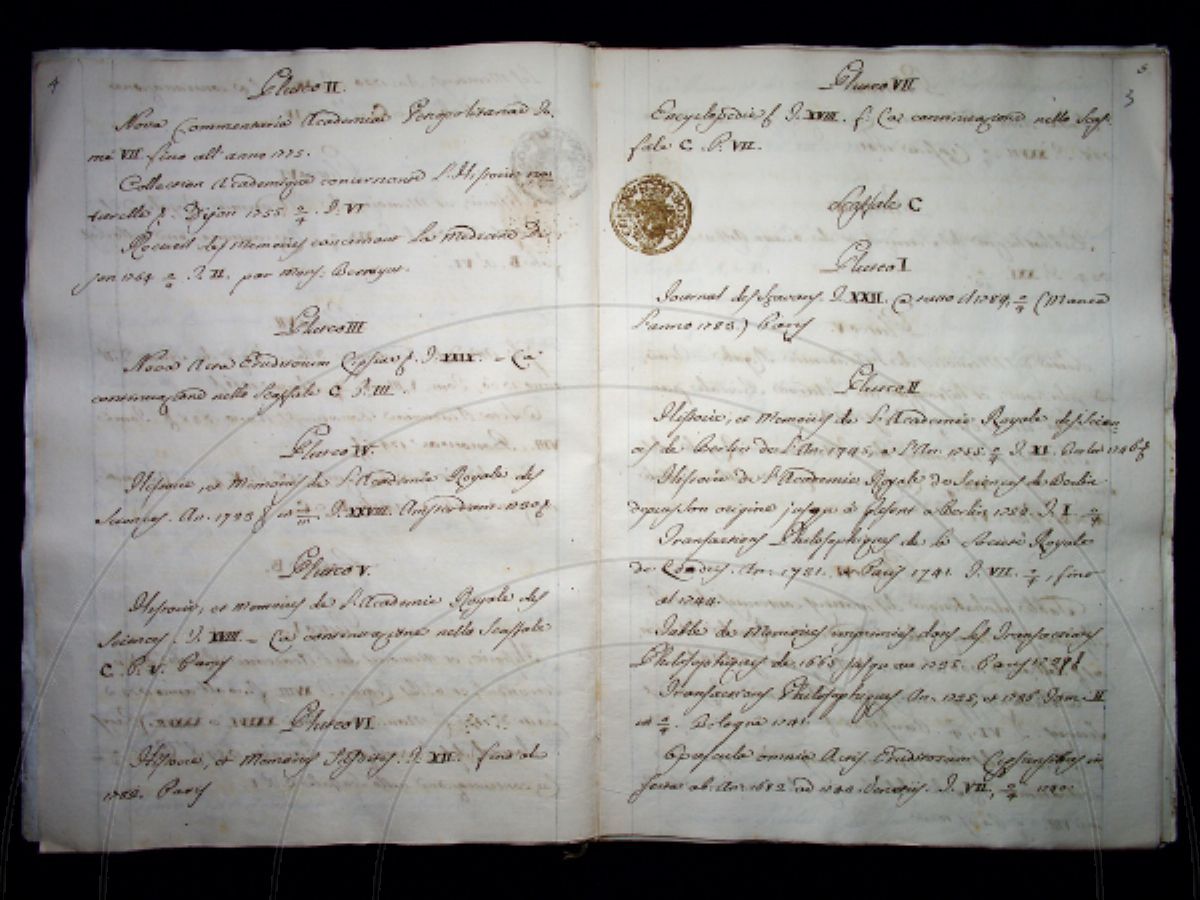 4
Pluteo II.
Nova Commentaria Academiae Petropolitanae To.
mi VII. fino all' anno 1775.
Collection Academique concernant l'Histoire na-
turelle f. Dijon 1755 2/4. T. VI
Recueil des Memoires concernant la Medecine Di-
jon 1764 T. II. par Mons. Berryat.
Pluteo III
Nova Acta Eruditorum Lipsiae f. T. XXIX. - La
continuazione nello Scaffale C. P. III.
Pluteo IV.
Histoire, et Memoires de l'Academie Royale des
Sciences. An. 1743 in T. XXVIII. Amsterdam.
Pluteo V.
Histoire, et Memoires de l'Academie Royale des
Sciences. T. XVIII - La continuazione nello Scaffale
C. P. V. Paris
Pluteo VI.
Histoire, et Memoires T. XII. fino al
1782. Paris
5
3
Pluteo VII
Encyclopedie f T. XVIII. f. La continuazione nello Scaf-
fale C. P. VII.
Scaffale C
Pluteo I.
Journal des Sçavans. T. XXII. 1784, 2/4 (Manca
l'anno 1783) Paris
Pluteo II
Histoire, et Memoires de l'Academie Royale des Scien-
ces de Berlin de l'An. 1745, a l'An. 1755 2/4 T. XI. Berlin 1746
Histoire de l'Academie Royale de Sciences de Berlin
depuis son origine jusqu'à présent a Berlin T. I. 2/4
Transactions Philosophiques de la Societé Royale
de Londres. An. 1731. Paris 1741. T. VII. 2/4, fino
al 1744.
Table de Memoires imprimés dans les Transactions
Philosophiques de 1665 jusqu'au 1735. Paris
Transactions Philosophiques An. Tom. II
in 2/4. Bologne 1741.
Opuscula omnia Actis Eruditorum Lipsiensibus in
serta ab. An. 1682 ad 1740. Venetiis. T. VII, 2/4 1740.